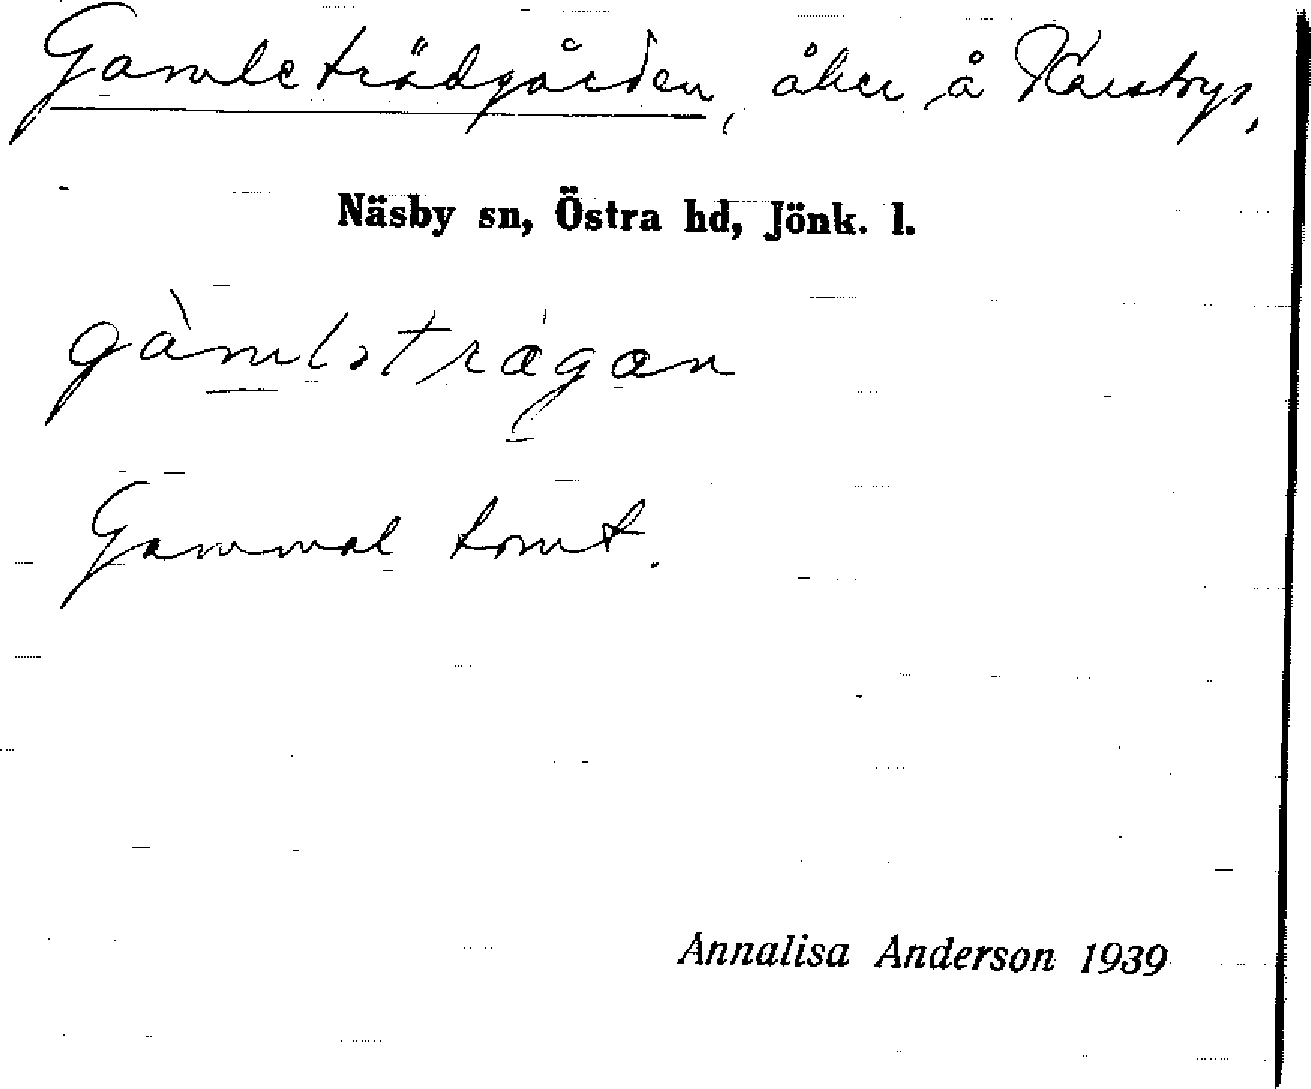 Gamleträdgården, åker å Karstorp.
Näsby sn, Östra hd, Jönk. l.
Gammal tomt.
Annalisa Anderson 1939